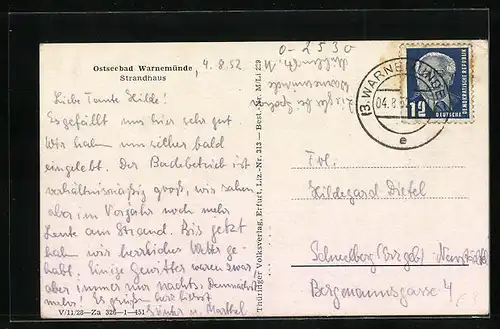 Ostseebad Warnemünde, 4.8.52
Strandhaus
Liebe Tante Hilde!
Es gefällt uns hier sehr gut.
Wir haben uns sicher bald
eingelebt. Der Badebetrieb ist
verhältnismäßig groß, wir sahen
aber im Vorjahr noch mehr
Leute am Strand. Bis jetzt
haben wir herrliches Wetter ge-
habt. Einige Gewitter waren zwar
aber immer nur nachts. Demnächst
mehr! Es grüßen herzlichst
Günter u.
V/11/28-Za 326-1-451
Thüringer Volksverlag, Erfurt, Liz.-Nr. 313 — Best.-Nr. M/Li 229
0-2530
Warnemünde
(3) WARNEMÜNDE
04.8.5
e
12
DEUTSCHE
DEMOKRATISCHE REPUBLIK
Frl.
Hildegard Dietel
Schneeberg (Erzgeb)-Neustädtel
Bergmannsgasse 4